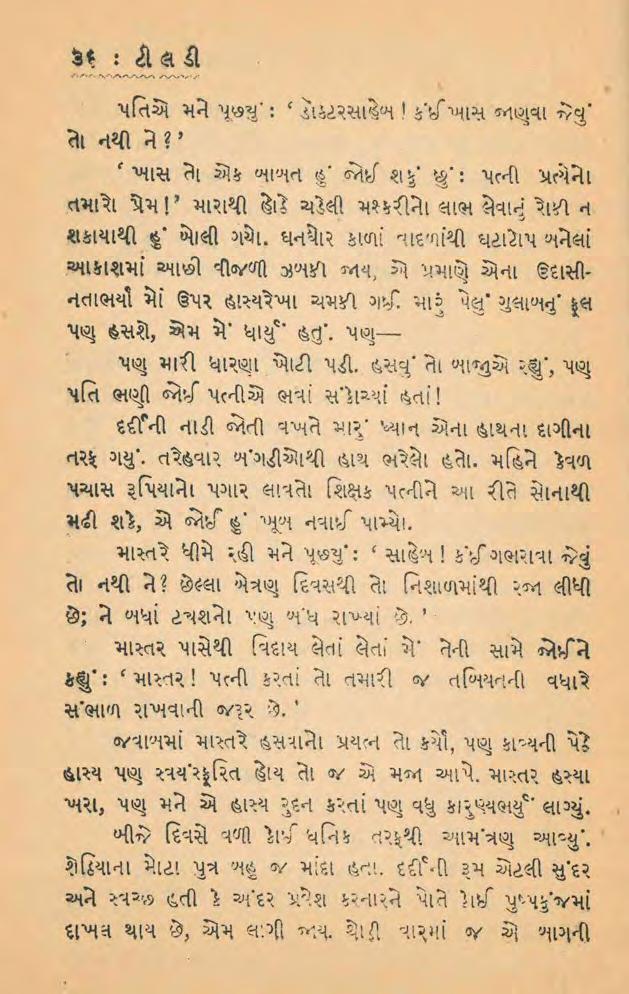 ૩૬ : ટી લ ડી
પતિએ મને પૂછ્યું : ‘ ડૉક્ટરસાહેબ ! કંઈ ખાસ જાણવા જેવું
તો નથી ને ? ’
‘ ખાસ તો એક બાબત હું જોઈ શકું છું : પત્ની પ્રત્યેનો
તમારો પ્રેમ ! ’ મારાથી હોઠે ચડેલી મશ્કરીનો લાભ લેવાનું રોકી ન
શકાયાથી હું બોલી ગયો. ઘનઘોર કાળાં વાદળાંથી ઘટાટોપ બનેલાં
આકાશમાં આછી વીજળી ઝબકી જાય, એ પ્રમાણે એના ઉદાસી-
નતાભર્યા મોં ઉપર હાસ્યરેખા ચમકી ગઈ. મારું પેલું ગુલાબનું ફૂલ
પણ હસશે, એમ મેં ધાર્યું હતું. પણ—
પણ મારી ધારણા ખોટી પડી. હસવું તો બાજુએ રહ્યું, પણ
પતિ ભણી જોઈ પત્નીએ ભવાં સંકોચ્યાં હતાં !
દર્દીની નાડી જોતી વખતે મારું ધ્યાન એના હાથના દાગીના
તરફ ગયું. તરેહવાર બંગડીઓથી હાથ ભરેલો હતો. મહિને કેવળ
પચાસ રૂપિયાનો પગાર લાવતો શિક્ષક પત્નીને આ રીતે સોનાથી
મઢી શકે, એ જોઈ હું ખૂબ નવાઈ પામ્યો.
માસ્તરે ધીમે રહી મને પૂછ્યું : ‘ સાહેબ ! કંઈ ગભરાવા જેવું
તો નથી ને ? છેલ્લા બેત્રણ દિવસથી તો નિશાળમાંથી રજા લીધી
છે; ને બધાં ટ્યુશનો પણ બંધ રાખ્યાં છે. ’
માસ્તર પાસેથી વિદાય લેતાં લેતાં મેં તેની સામે જોઈને
કહ્યું : ‘ માસ્તર ! પત્ની કરતાં તો તમારી જ તબિયતની વધારે
સંભાળ રાખવાની જરૂર છે. ’
જવાબમાં માસ્તરે હસવાનો પ્રયત્ન તો કર્યો, પણ કાવ્યની પેઠે
હાસ્ય પણ સ્વયંસ્ફૂરિત હોય તો જ એ મજા આપે. માસ્તર હસ્યા
ખરા, પણ મને એ હાસ્ય રુદન કરતાં પણ વધુ કારુણ્યભર્યું લાગ્યું.
બીજે દિવસે વળી કોઈ ધનિક તરફથી આમંત્રણ આવ્યું.
શેઠિયાના મોટા પુત્ર બહુ જ માંદા હતા. દર્દીની રૂમ એટલી સુંદર
અને સ્વચ્છ હતી કે અંદર પ્રવેશ કરનારને પોતે કોઈ પુષ્પકુંજમાં
દાખલ થાય છે, એમ લાગી જાય. થોડી વારમાં જ એ બાગની